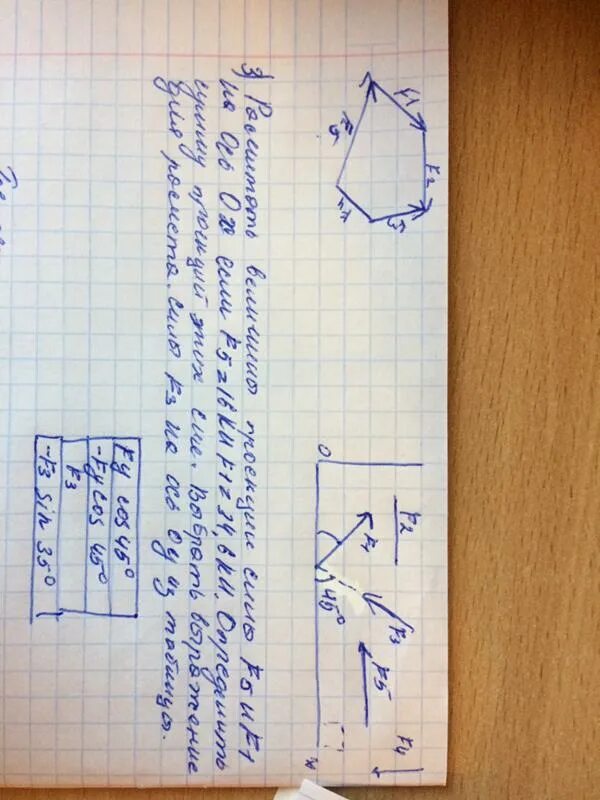 F1
F2
F3
F4
F5
F2
F1
F3
45°
F5
F4
O
x
3) Расчитать величины проекции силы F5 и F1
на ось Ox если F5=16 КН F1=34,6 КН. Определить
сумму проекций этих сил. Выбрать выражение
для расчета силы F3 на ось Oy из таблицы.
Fy cos 45°
-Fy cos 45°
F3
-F3 sin 35°